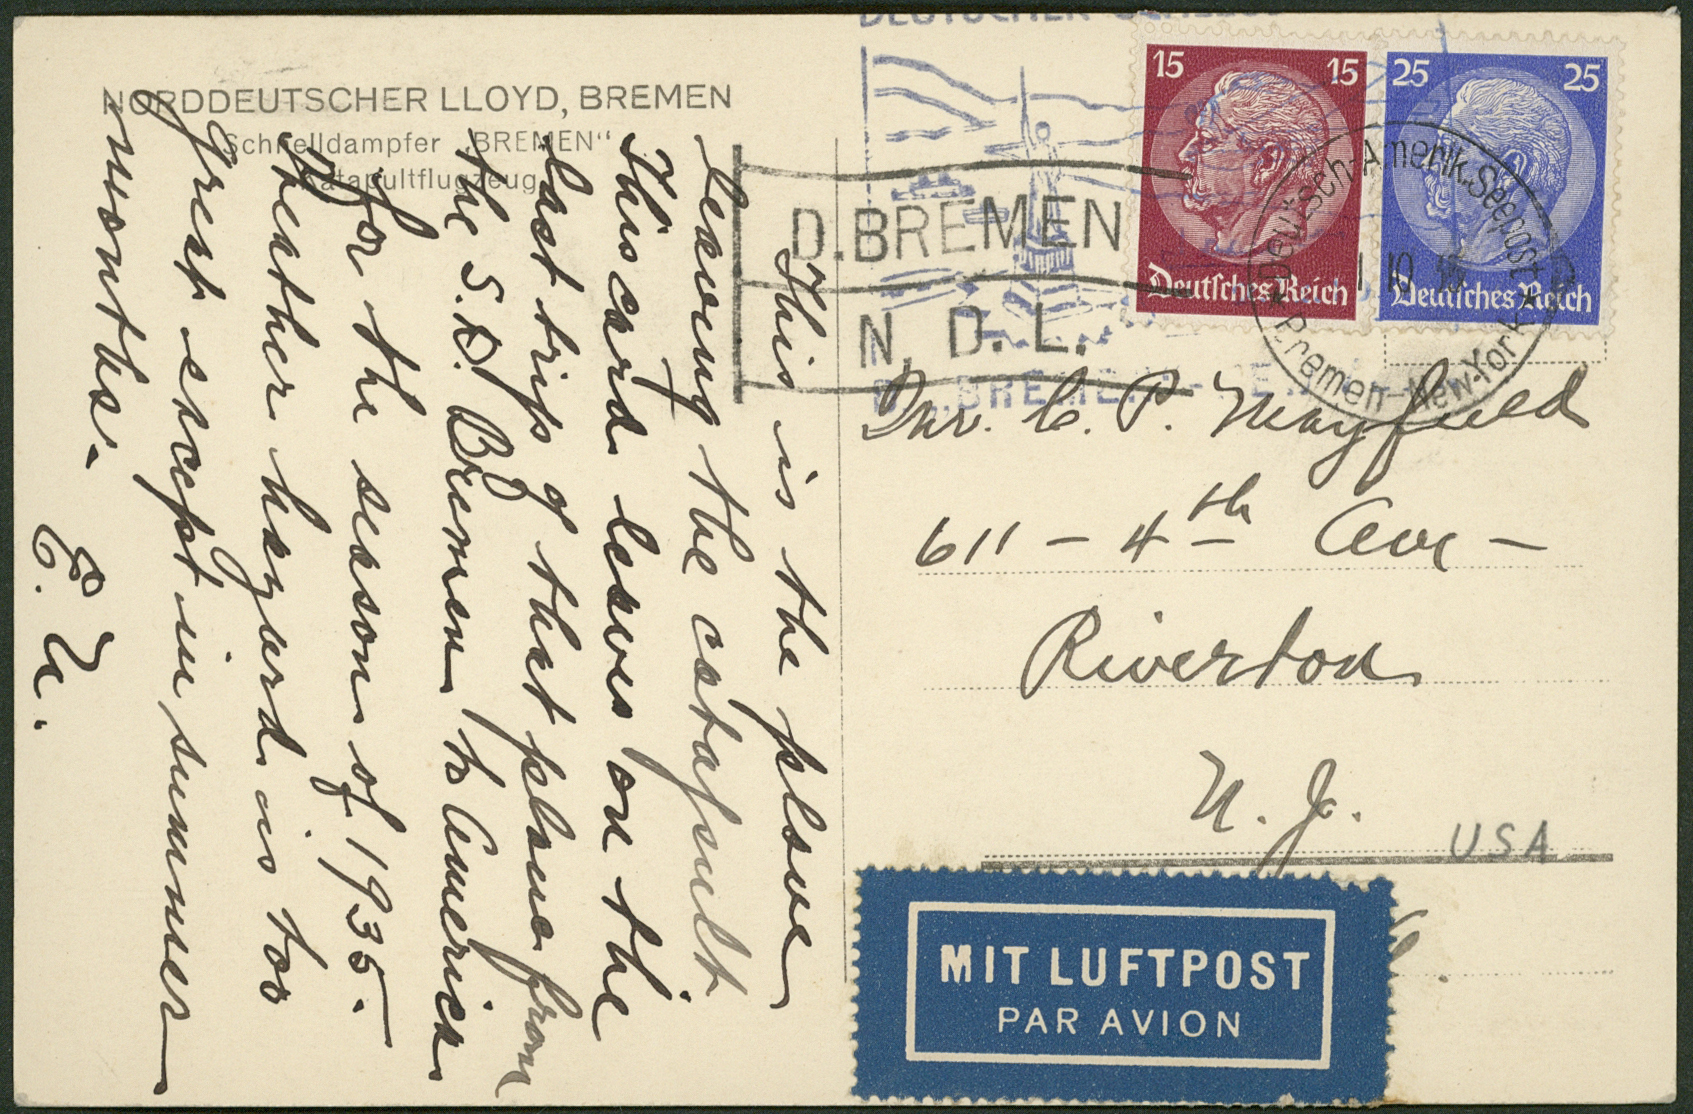 NORDDEUTSCHER LLOYD, BREMEN
Schnelldampfer „BREMEN“
Katapultflugzeug
This is the plane
leaving the catapult.
This card leaves on the
last trip of that plane from
the S.S. Bremen to America
for the season of 1935.
Weather hazard is too
great except in summer
months.
E. N.
DEUTSCHER
D. BREMEN
N. D. L.
BREMEN -
15 15
Deutsches Reich
25 25
Deutsches Reich
Deutsch-Amerik. Seepost
1 10 35
Bremen-New York
Mr. C. P. Mayfield
611 - 4th Ave -
Riverton
N. J.
USA
MIT LUFTPOST
PAR AVION